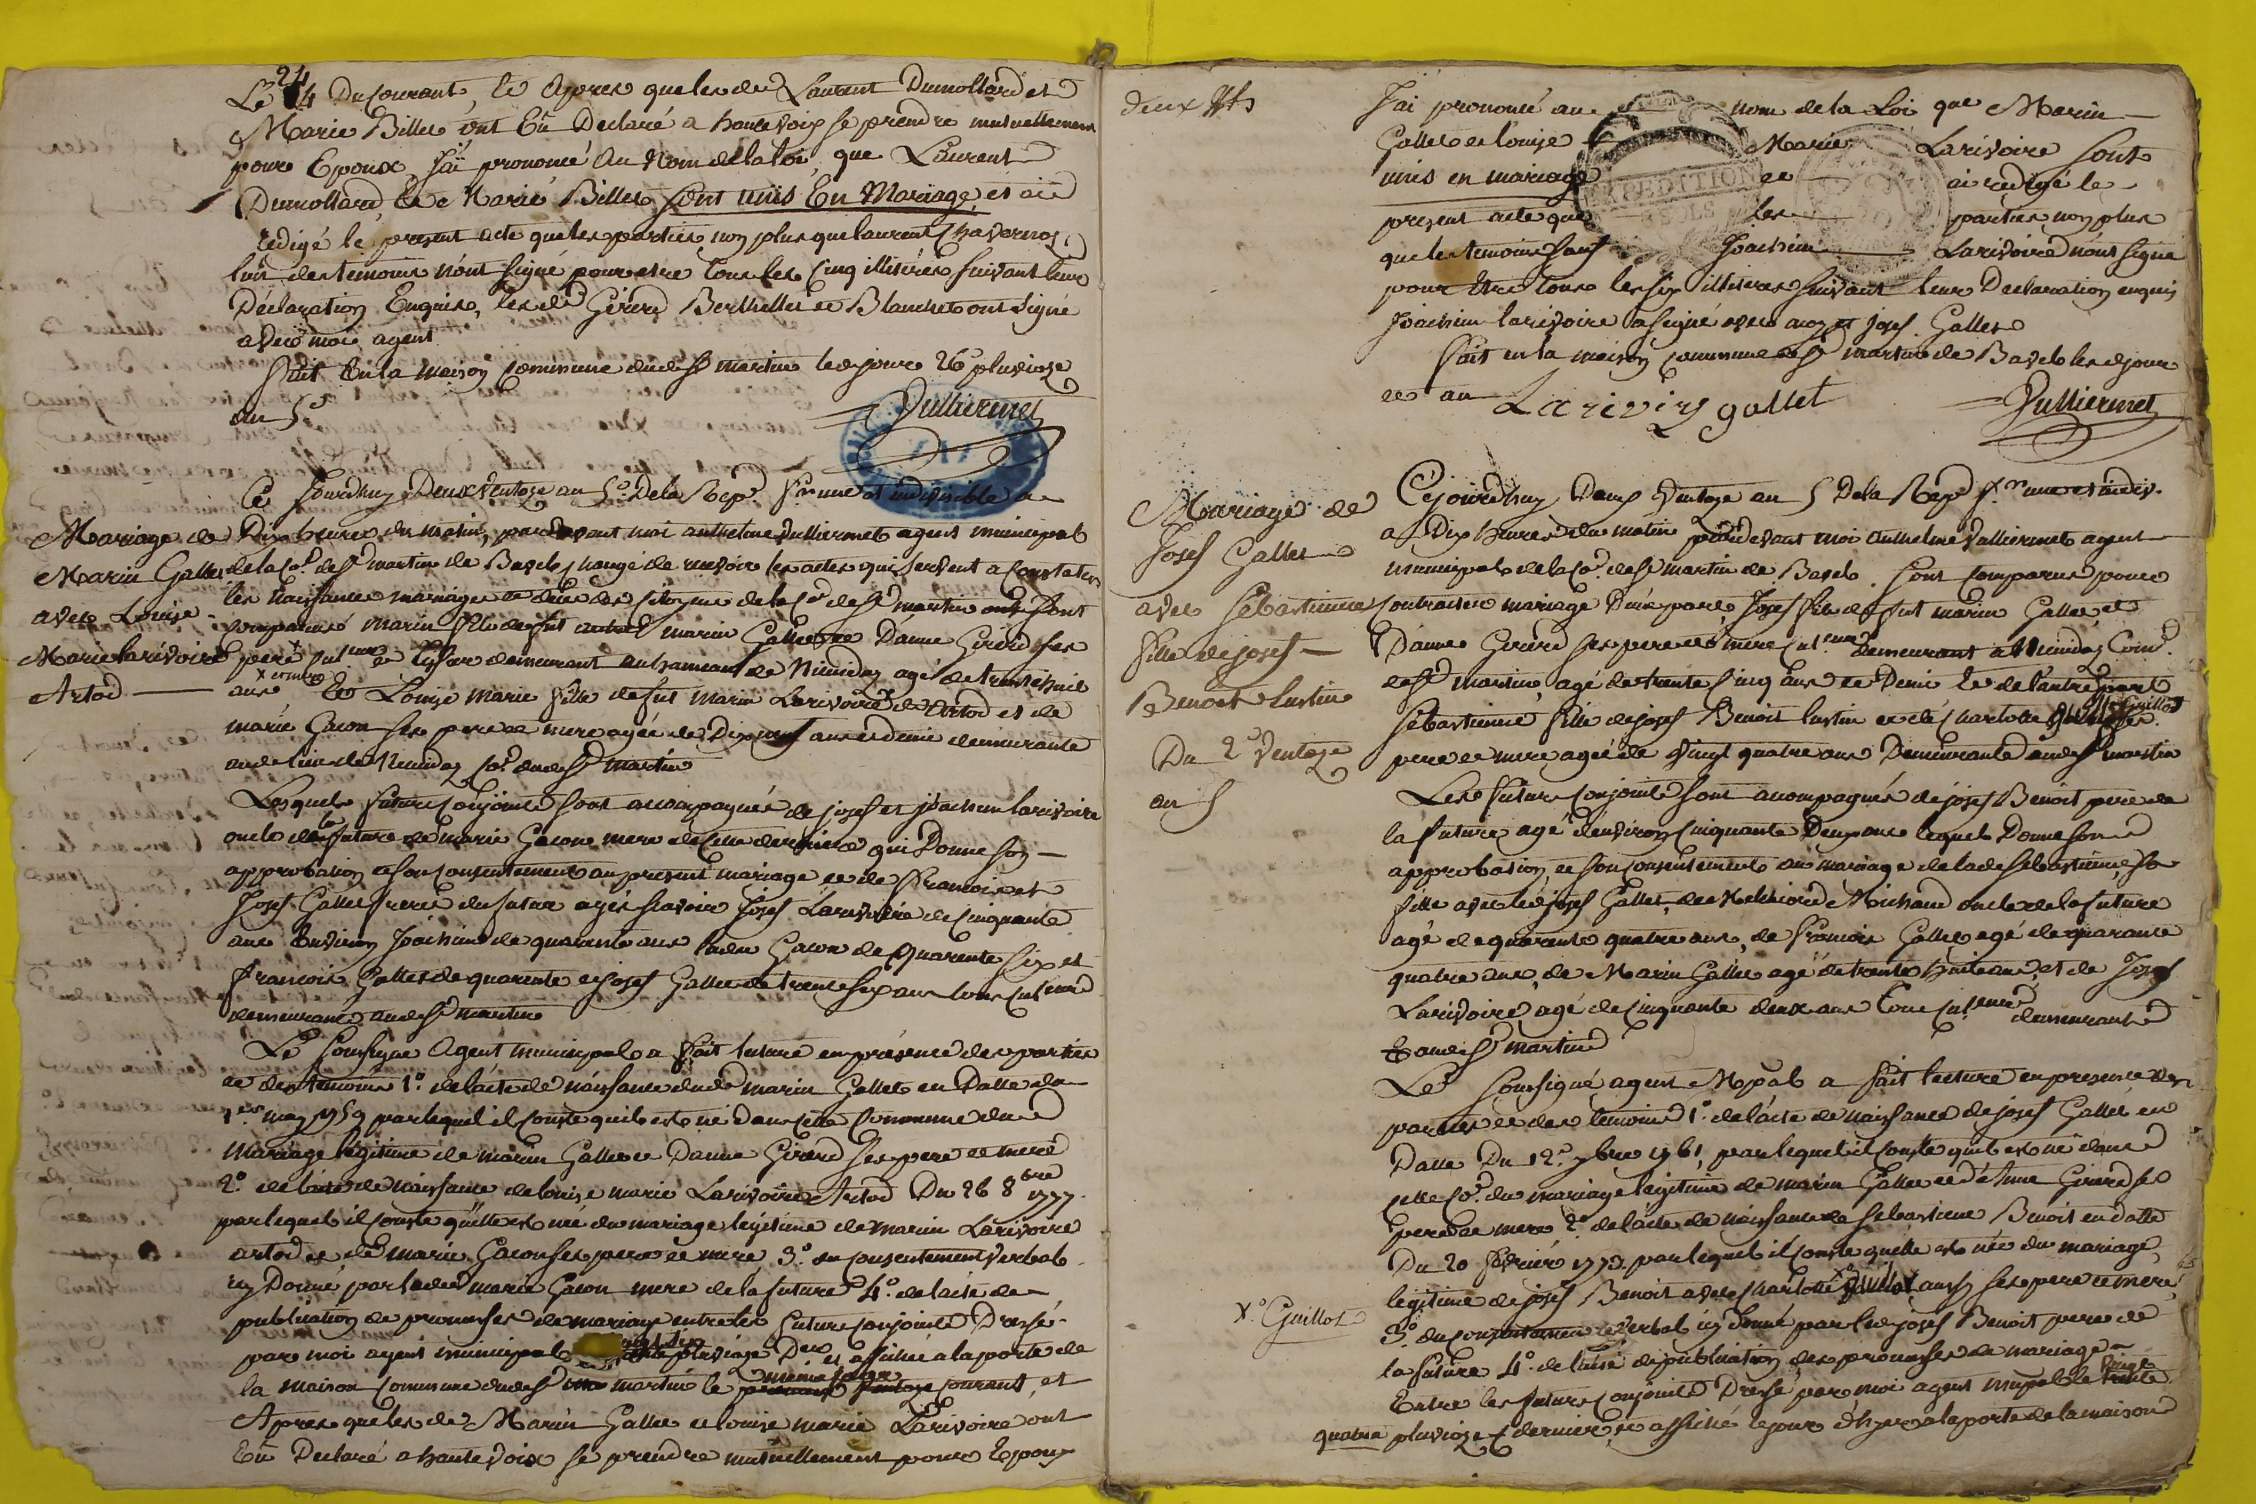 Le 24 Du Courant, Et Apres que lesd. Laurent Dumollard et
Marie Billet ont Eu Declaré a haute voix se prendre mutuellement
pour Epoux, J'ai prononcé Au Nom de la loi, que Laurent
Dumollard, Et Marie Billet sont unis En Mariage, et ai
redigé le present acte que les parties non plus que laurent Chavornos,
l'un des temoins n'ont signé pour etre tous les Cinq illiteres suivant leur
Declaration Enquis, les d. Gérerd Berthellet et Blanchet ont signé
avec moi agent.
Fait En la maison Commune dud. St martin lesd. jour 26 pluviose
an 5e
Vulliermet
Ce Jourdhuy Deux Ventoze an 5e De la Rep. fr. une et indivisible a
Mariage de
Marin Gallet
avec Louise
Marie larivoire
Artod
Dix heures du matin, par devant moi anthelme Vulliermet agent municipal
de la Co. de St martin de Bavel chargé de recevoir les actes qui servent a Constater
les naissances mariage et deces des Citoyens de la Co. de St martin sont
comparus marin fils de fut marin Gallet et D'anne Girerd ses
pere cultiveur demeurant au hameau de Niundaz agé de trente huit
ans Et Louise marie fille de fut marin Larivoire Artod et de
marie Gacon ses pere et mere agée de Dix neuf ans et demie demeurante
au de lieu de Niundaz Co. dud. St martin
Lesquels futurs Conjoints sont accompagnés de josef et joachim larivoire
oncle de la future de marie Gacon mere de cette derniere qui Donne son
approbation et son consentement au present mariage et de francois et
Josef Gallet freres du futur agés scavoir Josef Larivoire de Cinquante
ans Environ Joachim de quarante ans lad. Gacon de Quarente six et
francois Gallet de quarente et josef Gallet de trente six ans tous cult.
demeurant aud. St martin
Le soussigné Agent municipal a fait lecture en présence des parties
et des temoins 1o. de l'acte de naissance dud. marin Gallet en Datte du
1er. may 1759 par lequel il Conste qu'il est né dans cette Commune du
Mariage légitime de marin Gallet et Danne Girerd ses pere et mere
2o. de l'acte de naissance de louise marie Larivoire Artod Du 26 8bre 1777.
par lequel il Conste qu'elle est née du mariage legitime de marin Larivoire
artod et de marie Gacon ses pere et mere, 3o. du consentement verbal
icy Donné par lade. marie Gacon mere de la future 4o. de l'acte de
publication de promesses de mariage entre les futurs conjoints Dressé
par moi agent municipal pluviose Der. et affiché a la porte de
la maison commune dud. St martin le même jour courant, et
Apres que lesd. Marin Gallet et louise marie Larivoire ont
Eu Declaré a haute voix se prendre mutuellement pour Epoux
deux
J'ai prononcé au nom de la Loi que Marin
Gallet et louise Marie Larivoire sont
unis en mariage et ai redigé le
present acte que les parties non plus
que les temoins sauf Joachim Larivoire n'ont signé
EXPEDITION
pour Etre tous les six illiteres suivant leur Declaration enquis
Joachim larivoire a signé avec moi et Josef Gallet
Fait en la maison commune de St martin de Bavel lesd. jour
et an
Larivoire gallet
Vulliermet
Cejourdhuy Deux Ventoze an 5 De la Rep. fr. une et indiv.
Mariage de
Josef Gallet
avec Sébastienne
fille de josef
Benoit lustin
Du 2e Ventoze
an 5
a Dix heures du matin pardevant moi Anthelme Vulliermet agent
municipal de la Co. de St martin de Bavel. sont comparus pour
contracter mariage D'une part Josef fils de fut marin Gallet et
D'anne Girerd ses pere et mere cult. demeurant a Niundaz Com.
de St martin, agé de trente cinq ans et Demi Et de l'autre part
Sébastienne fille de josef Benoit lustin et de Charlotte Guillot ses
pere et mere agée de Vingt quatre ans Demeurante aud. St martin
Les futurs conjoints sont acompagnés de josef Benoit pere de
la future agé d'environ cinquante Deux ans lequel Donne son
approbation, et son consentement au mariage de lade Sebastienne, sa
fille avec led. josef Gallet, de Melchiord Michaud oncle de la future
agé de quarente quatre ans, de francois Gallet agé de quarante
quatre ans, de Marin Gallet agé de trente huit ans, et de Josef
Larivoire agé de cinquante deux ans tous cult. demeurants
aud. St martin
Le soussigné, agent Mpal a fait lecture en presence des
parties et des temoins 1o. de l'acte de naissance de josef Gallet en
Datte Du 12e. 7bre 1761, par lequel il conste qu'il est né dans
cette Co. du mariage legitime de marin Gallet et d'Anne Girerd ses
pere et mere 2o. de l'acte de naissance de Sebastienne Benoit en datte
Du 20 fevrier 1773. par lequel il conste qu'elle est née du mariage
legitime de josef Benoit avec Charlotte aussy ses pere et mere,
X.o Guillot
3o. du consentement verbal icy donné par led. josef Benoit pere de
la future 4o. de l'acte de publication des promesses de mariage
Entre les futurs conjoints Dressé par moi agent mupal le vingt
quatre pluvioze dernier, et affiché le jour d'hyer a la porte de la maison